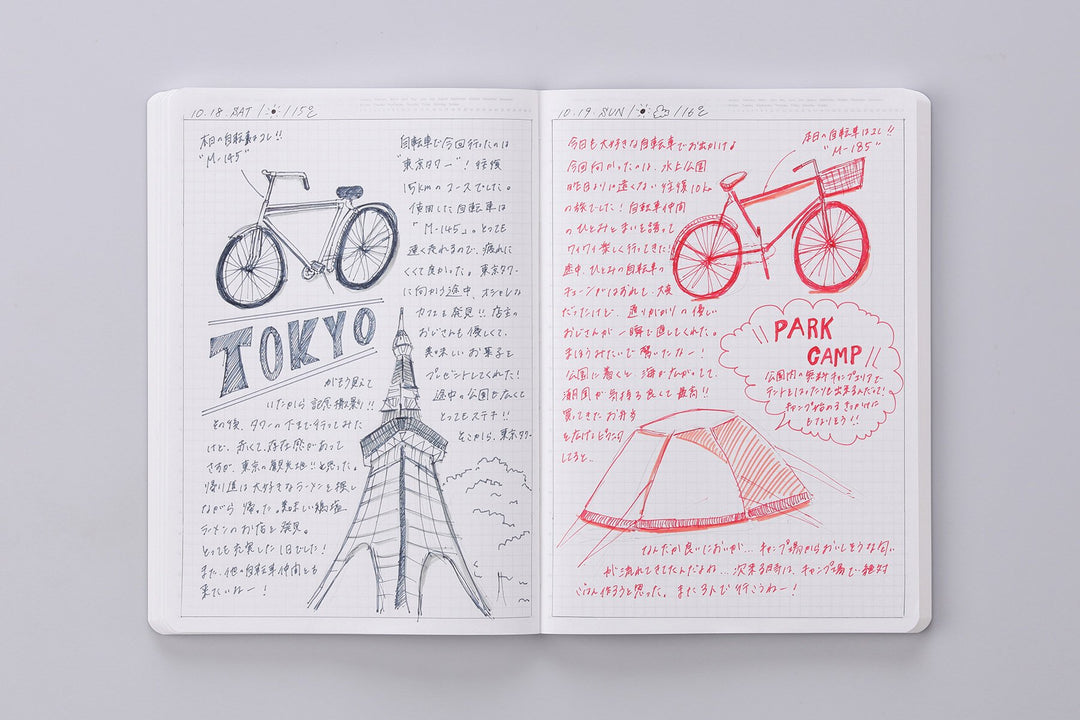 10.18.SAT / ☀ / 15℃
本日の自転車はコレ!!
"M-145"
自転車で今回行ったのは
"東京タワー"! 往復
15kmのコースでした。
使用した自転車は
「M-145」。とっても
速く走れるので、疲れに
くくて良かった。東京タワー
に向かう途中、オシャレな
カフェも発見!! 店主の
おじさんも優しくて、
美味しいお菓子を
プレゼントしてくれた!
途中の公園もなくも
とってもステキ!!
そこから、東京タワー
TOKYO
がもう見えて
いたから 記念撮影り!!
その後、タワーの下まで行ってみた
けど、赤くて、存在感があって
さすが、東京の観光地!!と思った。
帰り道は大好きなラーメンを探し
ながら 帰った。美味しい
ラーメンのお店を発見。
とっても充実した1日でした!
また、他の自転車仲間とも
来たいねー!
10.19.SUN / ☀ ☁ / 16℃
今日も大好きな自転車でお出かけ♪
今回向かったのは、水上公園
昨日よりは遠くない 往復10km
の旅でした! 自転車仲間
のひとみとまいを誘って
ワイワイ楽しく行ってきた!
途中、ひとみの自転車の
チェーンがはずれし、大変
だったけど、通りがかりの優しい
おじさんが 一瞬で直してくれた。
まほうみたいで 驚いたなー!
公園に着くと、海がながってて、
潮風が気持ち良くて 最高!!
買ってきたお弁当
を広げピクニック
してると…
本日の自転車はコレ!!
"M-185"
PARK
CAMP
公園内の無料キャンプエリアで
テントをはったりも出来るんだって!
キャンプ始めるきっかけに
もなりそう!!
なんだか良いにおいが… キャンプ場からおいしそうな匂い
が流れてきてたんだよね… 次来る時は、キャンプ場で絶対
ごはん作ろうと思った。また3人で行こうねー!